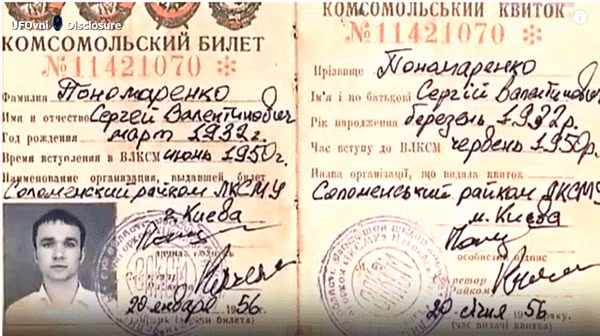 UFOvni Disclosure
КОМСОМОЛЬСКИЙ БИЛЕТ
№ 11421070
Фамилия Пономаренко
Имя и отчество Сергей Валентинович
Год рождения март 1932 г.
Время вступления в ВЛКСМ июнь 1950 г.
Наименование организации, выдавшей билет
Соломенский райком ЛКСМУ
г. Киева
20 января 1956 г.
КОМСОМОЛЬСЬКИЙ КВИТОК
№ 11421070
Прізвище Пономаренко
Ім'я і по батькові Сергій Валентинович
Рік народження березень 1932 р.
Час вступу до ВЛКСМ червень 1950 р.
Назва організації, що видала квиток
Соломенський райком ЛКСМУ
м. Києва
особистий підпис
20 січня 1956 р.
(час видачі квитка)